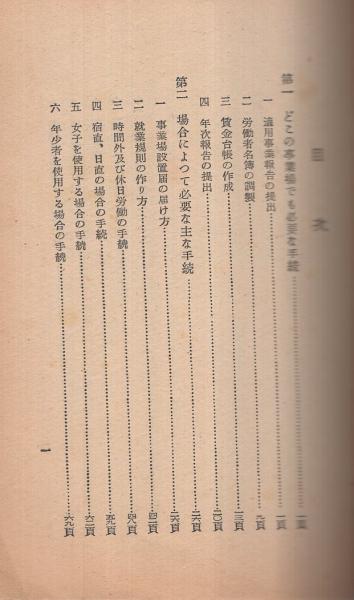 目次
第一 どこの事業場でも必要な手続
一 適用事業報告の提出……一頁
二 労働者名簿の調製……九頁
三 賃金台帳の作成……一三頁
四 年次報告の提出……二〇頁
第二 場合によつて必要な主な手続……二六頁
一 事業場設置届の届け方……二六頁
二 就業規則の作り方……四二頁
三 時間外及び休日労働の手続……四八頁
四 宿直、日直の場合の手続……五九頁
五 女子を使用する場合の手続……六二頁
六 年少者を使用する場合の手続……六九頁
一